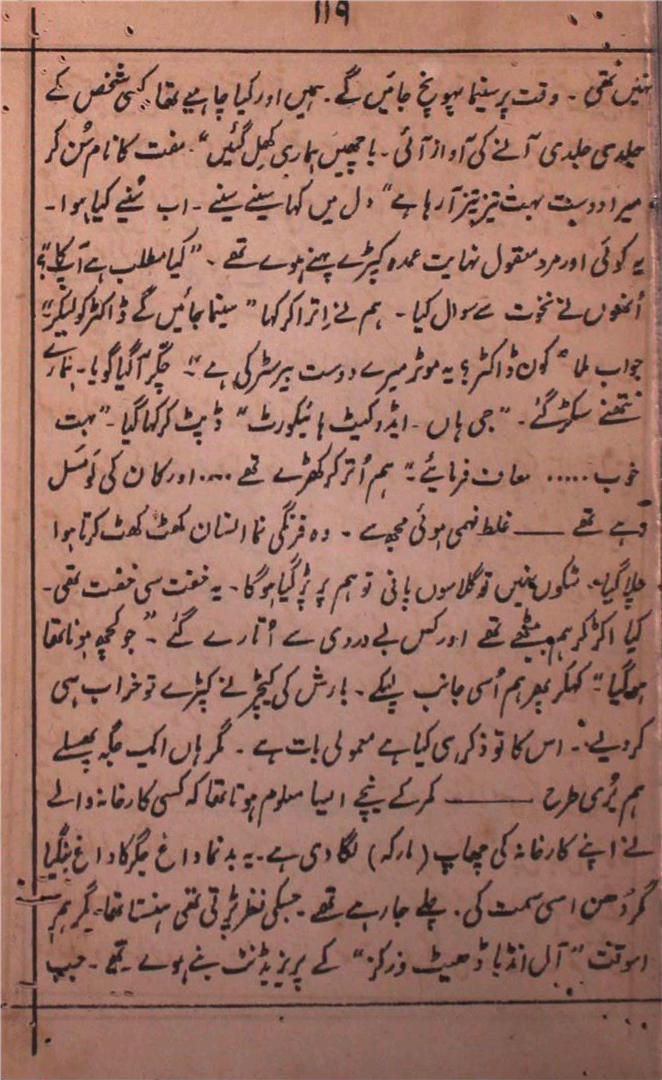 ۱۱۹
نہیں تھی۔ وقت پر سینما پہونچ جائیں گے۔ ہمیں اور کیا چاہیے تھا کسی شخص کے
جلدی جلدی آنے کی آواز آئی۔ باچھیں ہماری کھل گئیں“۔ مفت کا نام سُن کر
میرا دوست بہت تیز تیز آرہا ہے“ دل میں کہا سینے سینے۔ اب سُنیے کیا ہوا۔
یہ کوئی اور مرد معقول نہایت عمدہ کپڑے پہنے ہوے تھے۔ ”کیا مطلب ہے آپ کا“؟
اُنھوں نے نخوت سے سوال کیا۔ ہم نے اِترا کر کہا ”سینما جائیں گے ڈاکٹر کو لیکر“
جواب ملا ”کون ڈاکٹر؟ یہ موٹر میرے دوست بیرسٹر کی ہے“۔ چکّر آگیا گویا۔ ہمارے
نتھنے سکڑ گئے۔ ”جی ہاں۔ ایڈوکیٹ ہائیکورٹ“ ڈپٹ کر کہا گیا۔ ”بہت
خوب ..... معاف فرمائیے“ ہم اُتر کر کھڑے تھے .... اور کان کی لَو مَسل
رہے تھے —— غلط فہمی ہوئی مجھ سے۔ وہ فرنگی نما انسان کھٹ کھٹ کرتا ہوا
چلا گیا۔ مٹکوں نہیں تو گلاسوں پانی تو ہم پر پڑ گیا ہوگا۔ یہ خفت سی خفت تھی۔
کیا اکڑ کر ہم بیٹھے تھے اور کس بے دردی سے اُتارے گئے۔ ”جو کچھ ہونا تھا
ہوگیا“ کہکر پھر ہم اُسی جانب لپکے۔ بارش کی کیچڑ نے کپڑے تو خراب ہی
کردیے۔ اس کا تو ذکر ہی کیا ہے معمولی بات ہے۔ مگر ہاں ایک جگہ پھسلے
ہم بُری طرح —— کمر کے نیچے ایسا معلوم ہوتا تھا کہ کسی کارخانہ والے
نے اپنے کارخانہ کی چھاپ (مارکہ) لگا دی ہے۔ یہ بدنما داغ جگر کا داغ بنگیا
مگر دُھن اسی سمت کی۔ چلے جارہے تھے۔ جسکی نظر پڑتی تھی ہنستا تھا۔ مگر ہم
اسوقت ”آل انڈیا ڈھیٹ ورکز“ کے پریزیڈنٹ بنے ہوے تھے۔ جب